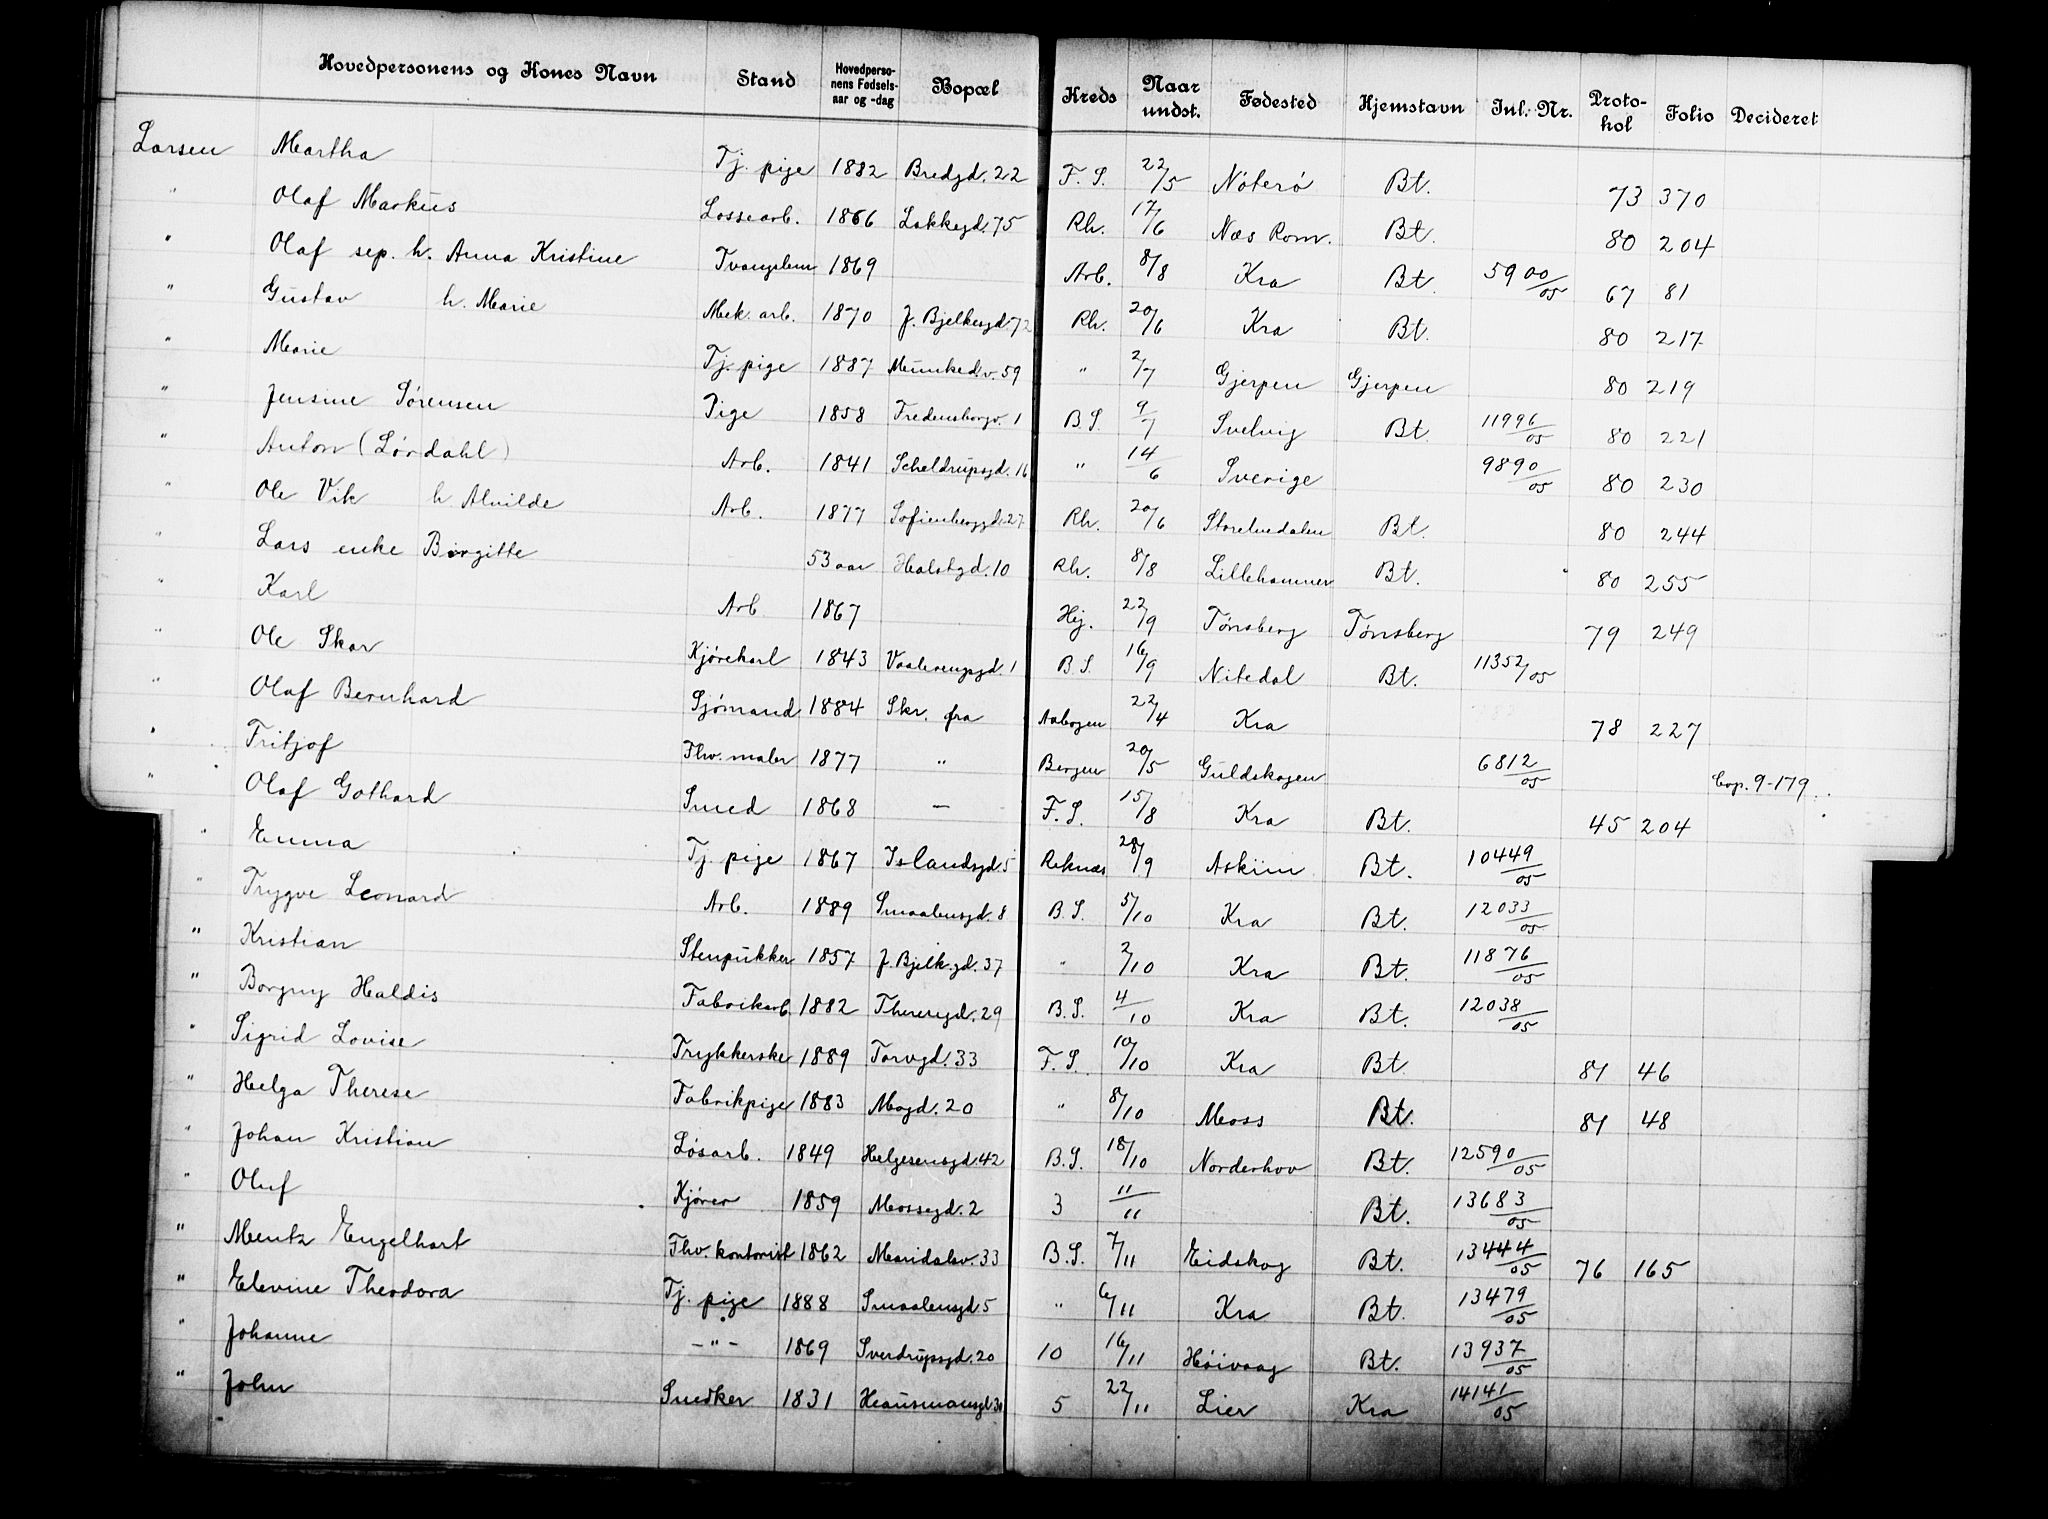 Hovedpersonens og Kones Navn Stand Hovedpersonens Fødselsaar og -dag Bopæl Kreds Naar undst. Fødested Hjemstavn Jnl. Nr. Protokol Folio Decideret
Larsen Martha Tj. pige 1882 Bredgd. 22 F. S. 22/5 Nöterö Bt. 73 370
" Olaf Markus Lossearb. 1866 Lakkegd. 75 Rh. 17/6 Næs Rom. Bt. 80 204
" Olaf sep. h. Anna Kristine Tvangslem 1869 Arb. 8/8 Kra Bt. 5900/05 67 81
" Gustav h. Marie Mek. arb. 1870 J. Bjelkesgd. 72 Rh. 20/6 Kra Bt. 80 217
" Marie Tj. pige 1887 Munked.v. 59 " 2/7 Gjerpen Gjerpen 80 219
" Jensine Sørensen Pige 1858 Fredensborgv. 1 B. S. 9/7 Svelvig Bt. 11996/05 80 221
" Anton (Lørdahl) Arb. 1841 Scheldrupsgd. 16 " 14/6 Sverige 9890/05 80 230
" Ole Vik h. Alvilde Arb. 1877 Sofienberggd. 27 Rh. 20/6 Storelvedalen Bt. 80 244
" Lars enke Birgitte 53 aar Holstgd. 10 Rh. 8/8 Lillehammer Bt. 80 255
" Karl Arb 1867 Hej. 22/9 Tønsberg Tønsberg 79 249
" Ole Skar Kjørekarl 1843 Vaalerengsgd. 1 B. S. 16/9 Nitedal Bt. 11352/05
" Olaf Bernhard Sjømand 1884 Skr. fra Aabogen 22/4 Kra 78 227
" Fritjof Fhv. maler 1877 " Bergen 20/5 Guldskogen 6812/05 Cop. 9-179
" Olaf Gothard Smed 1868 — F. S. 15/8 Kra Bt. 45 204
" Emma Tj. pige 1867 Islandsgd. 5 Reknæs 28/9 Askim Bt. 10449/05
" Trygve Leonard Arb. 1889 Smaalensgd. 8 B. S. 5/10 Kra Bt. 12033/05
" Kristian Stenpukker 1857 J. Bjelk.gd. 37 " 2/10 Kra Bt. 11876/05
" Borgny Haldis Fabrikarb. 1882 Theresegd. 29 B. S. 4/10 Kra Bt. 12038/05
" Sigrid Lovise Trykkerske 1889 Torvgd. 33 F. S. 10/10 Kra Bt 81 46
" Helga Therese Fabrikpige 1883 Mogd. 20 " 8/10 Moss Bt. 81 48
" Johan Kristian Løsarb. 1849 Helgesensgd. 42 B. S. 18/10 Norderhov Bt. 12590/05
" Oluf Kjører 1859 Mossegd. 2 3 11/11 Bt. 13683/05
" Mentz Engelhart Fhv. kontorist 1862 Maridalsv. 33 B. S. 7/11 Eidskog Bt. 13444/05 76 165
" Elevine Theodora Tj. pige 1888 Smaalensgd. 5 " 6/11 Kra Bt. 13479/05
" Johanne —"— 1869 Sverdrupsgd. 20 10 16/11 Høivaag Bt. 13937/05
" John Snedker 1831 Hausmansgd 5 22/11 Lier Kra 14141/05